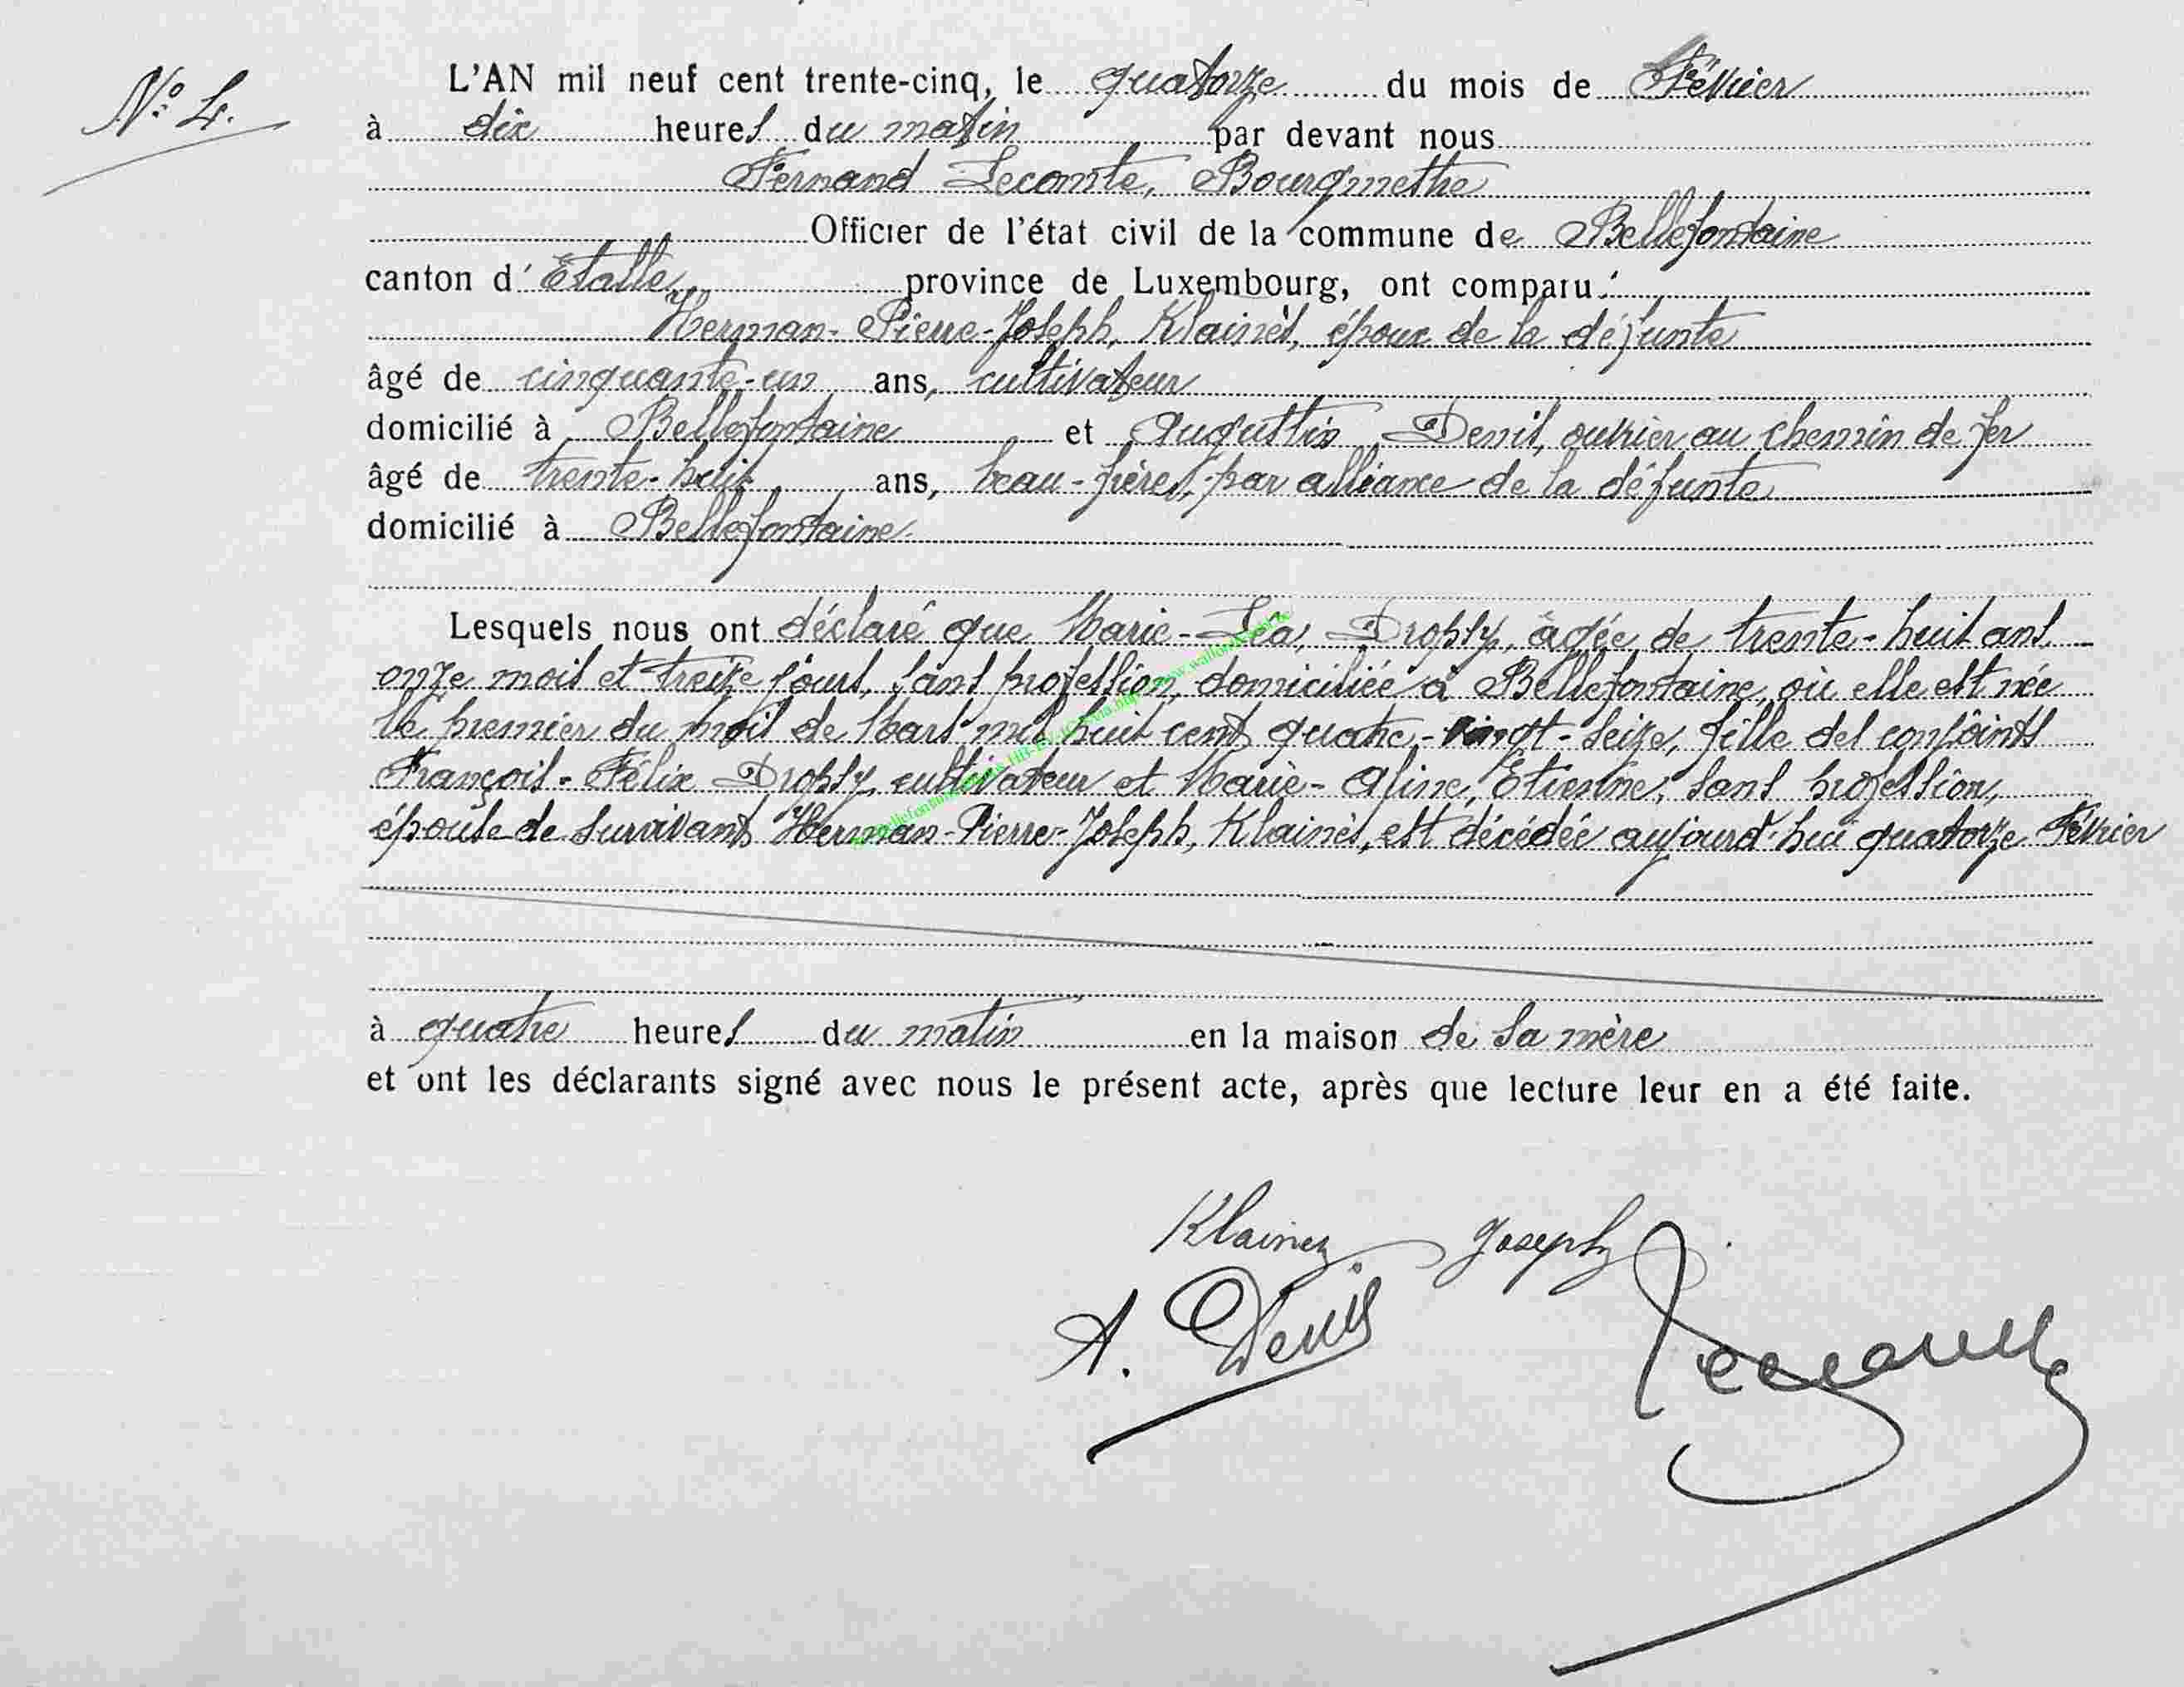 N° 4.
L'AN mil neuf cent trente-cinq, le quatorze du mois de Février
à dix heures du matin par devant nous
Fernand Lecomte, Bourgmestre
Officier de l'état civil de la commune de Bellefontaine
canton d'Etalle, province de Luxembourg, ont comparu :
Herman-Pierre-Joseph, Klainès, époux de la défunte
âgé de cinquante-un ans, cultivateur
domicilié à Bellefontaine et Augustin Denis, ouvrier au chemin de fer
âgé de trente-huit ans, beau-frères, par alliance de la défunte
domicilié à Bellefontaine.
Lesquels nous ont déclaré que Marie-Léa, Dropsy, âgée de trente-huit ans,
onze mois et treize jours, sans profession, domiciliée à Bellefontaine, où elle est née
le premier du mois de Mars mil huit cent quatre-vingt-seize, fille des conjoints
François-Félix Dropsy, cultivateur et Marie-Aline, Etienne, sans profession,
épouse de survivant Herman-Pierre-Joseph, Klainès, est décédée aujourd'hui quatorze Février
à quatre heures du matin en la maison de sa mère
et ont les déclarants signé avec nous le présent acte, après que lecture leur en a été faite.
Klainez Joseph
A. Denis
Lecomte